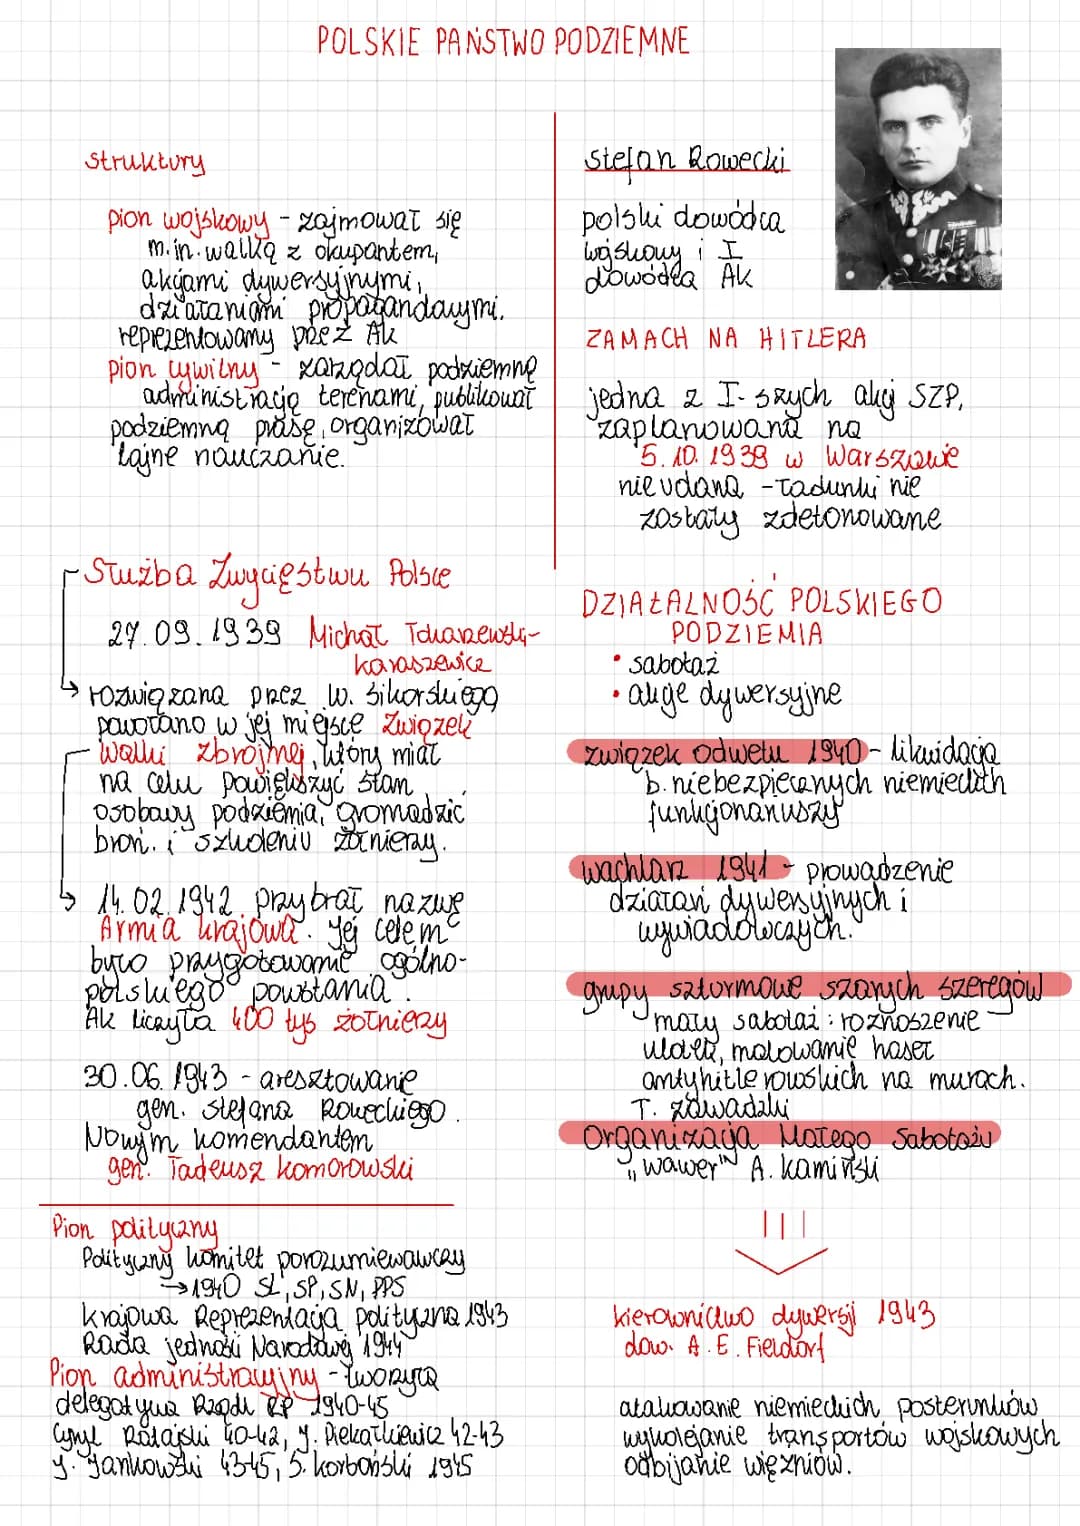 POLSKIE PAŃSTWO PODZIEMNE
struktury
pion wojskowy - zajmował się
m.in. walką z okupantem,
akcjami dywersyjnymi,
działaniami propagandowymi.
reprezentowany przez AK
pion cywilny - zarządał podziemnę
administracją terenami, publikował
podziemną prasę, organizował
tajne nauczanie.
Służba Zwycięstwu Polsce
27.09.1939 Michał Tokarzewski-
karaszewicz
rozwiązana przez W. Sikorskiego
powołano w jej miejsce Związek
Walki zbrojnej, który miał
na celu powiększyć stan
osobowy podziemia, gromadzić
broń. i szkoleniu żołnierzy.
14.02.1942 przybrał nazwę
Armia krajowa. Jej celem
było przygotowanie ogólno-
polskiego powstania.
AK liczyła 400 tyś żołnierzy
30.06.1943 - aresztowanie
gen. Stefana Roweckiego.
Nowym komendantem
gen. Tadeusz komorowski
Pion polityczny
Polityczny komitet porozumiewawczy
→1940 SL, SP, SN, PPS
krajowa Reprezentacja polityczna 1943
Rada jedności Narodowej 1944
Pion administracyjny - tworzyła
delegatura Rządu RP 1940-45
Cyryl Ratajski 40-42, J. Piekałkiewicz 42-43
J. Jankowski 43-45, S. korboński 1945
Stefan Rowecki
polski dowódca
wojskowy i I
dowódca AK
ZAMACH NA HITLERA
jedna z I-szych akcji SZP,
zaplanowana na
5.10.1939 w Warszawie
nieudana - ładunki nie
zostały zdetonowane
DZIAŁALNOŚĆ POLSKIEGO
PODZIEMIA
• sabotaż
• akcje dywersyjne
związek odwetu 1940 - likwidacja
b. niebezpiecznych niemieckich
funkcjonariuszy
wachlarz 1941 - prowadzenie
działań dywersyjnych i
wywiadowczych.
grupy szturmowe szarych szeregów
mały sabotaż: roznoszenie
ulotek, malowanie haseł
antyhitlerowskich na murach.
T. zawadzki
Organizacja Małego Sabotażu
"wawer" A. kamiński
kierownictwo dywersji 1943
dow. A.E. Fieldorf
atakowanie niemieckich posterunków
wykolejanie transportów wojskowych
odbijanie więźniów.